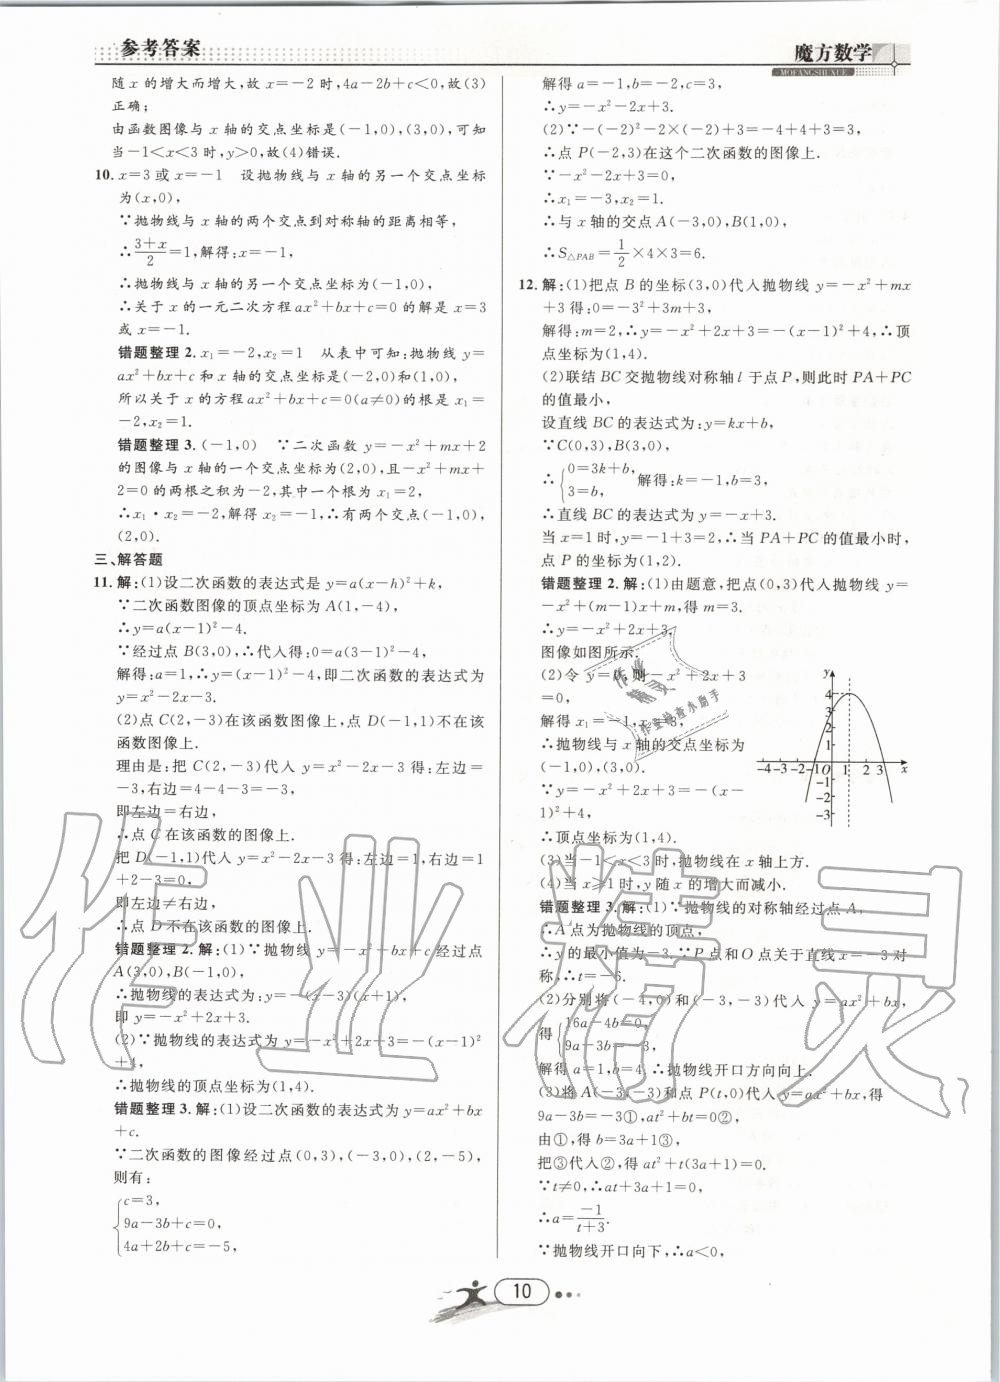 参考答案
魔方数学
MOFANGSHUXUE
随 x 的增大而增大,故 x=-2 时,4a-2b+c<0,故(3)
正确;
由函数图像与 x 轴的交点坐标是(-1,0),(3,0),可知
当-1<x<3 时,y>0,故(4)错误.
10. x=3 或 x=-1　设抛物线与 x 轴的另一个交点坐标
为(x,0),
∵抛物线与 x 轴的两个交点到对称轴的距离相等,
∴(3+x)/2=1,解得:x=-1,
∴抛物线与 x 轴的另一个交点坐标为(-1,0),
∴关于 x 的一元二次方程 ax²+bx+c=0 的解是 x=3
或 x=-1.
错题整理 2. x₁=-2,x₂=1　从表中可知:抛物线 y=
ax²+bx+c 和 x 轴的交点坐标是(-2,0)和(1,0),
所以关于 x 的方程 ax²+bx+c=0(a≠0)的根是 x₁=
-2,x₂=1.
错题整理 3. (-1,0)　∵二次函数 y=-x²+mx+2
的图像与 x 轴的一个交点坐标为(2,0),且-x²+mx+
2=0 的两根之积为-2,其中一个根为 x₁=2,
∴x₁·x₂=-2,解得 x₁=-1,∴有两个交点(-1,0),
(2,0).
三、解答题
11. 解:(1)设二次函数的表达式是 y=a(x-h)²+k,
∵二次函数图像的顶点坐标为 A(1,-4),
∴y=a(x-1)²-4.
∵经过点 B(3,0),∴代入得:0=a(3-1)²-4,
解得:a=1,∴y=(x-1)²-4,即二次函数的表达式为
y=x²-2x-3.
(2)点 C(2,-3)在该函数图像上,点 D(-1,1)不在该
函数图像上.
理由是:把 C(2,-3)代入 y=x²-2x-3 得:左边=
-3,右边=4-4-3=-3,
即左边=右边,
∴点 C 在该函数的图像上.
把 D(-1,1)代入 y=x²-2x-3 得:左边=1,右边=1
+2-3=0,
即左边≠右边,
∴点 D 不在该函数的图像上.
错题整理 2. 解:(1)∵抛物线 y=-x²+bx+c 经过点
A(3,0),B(-1,0),
∴抛物线的表达式为:y=-(x-3)(x+1),
即 y=-x²+2x+3.
(2)∵抛物线的表达式为 y=-x²+2x+3=-(x-1)²
+4,
∴抛物线的顶点坐标为(1,4).
错题整理 3. 解:(1)设二次函数的表达式为 y=ax²+bx
+c.
∵二次函数的图像经过点(0,3),(-3,0),(2,-5),
则有:
c=3,
9a-3b+c=0,
4a+2b+c=-5,
解得 a=-1,b=-2,c=3,
∴y=-x²-2x+3.
(2)∵-(-2)²-2×(-2)+3=-4+4+3=3,
∴点 P(-2,3)在这个二次函数的图像上.
∵-x²-2x+3=0,
∴x₁=-3,x₂=1.
∴与 x 轴的交点 A(-3,0),B(1,0),
∴S△PAB=1/2×4×3=6.
12. 解:(1)把点 B 的坐标(3,0)代入抛物线 y=-x²+mx
+3 得:0=-3²+3m+3,
解得:m=2,∴y=-x²+2x+3=-(x-1)²+4,∴顶
点坐标为(1,4).
(2)联结 BC 交抛物线对称轴 l 于点 P,则此时 PA+PC
的值最小,
设直线 BC 的表达式为:y=kx+b,
∵C(0,3),B(3,0),
∴{0=3k+b, 3=b, 解得:k=-1,b=3,
∴直线 BC 的表达式为 y=-x+3.
当 x=1 时,y=-1+3=2,∴当 PA+PC 的值最小时,
点 P 的坐标为(1,2).
错题整理 2. 解:(1)由题意,把点(0,3)代入抛物线 y=
-x²+(m-1)x+m,得 m=3.
∴y=-x²+2x+3.
图像如图所示.
(2)令 y=0,则-x²+2x+3
=0,
解得 x₁=-1,x₂=3,
∴抛物线与 x 轴的交点坐标为
(-1,0),(3,0).
∵y=-x²+2x+3=-(x-
1)²+4,
∴顶点坐标为(1,4).
y
4
3
2
1
-4-3-2-1O 1 2 3 x
-1
-2
-3
(3)当-1<x<3 时,抛物线在 x 轴上方.
(4)当 x≥1 时,y 随 x 的增大而减小.
错题整理 3. 解:(1)∵抛物线的对称轴经过点 A,
∴A 点为抛物线的顶点,
∴y 的最小值为-3.∵P 点和 O 点关于直线 x=-3 对
称,∴t=-6.
(2)分别将(-4,0)和(-3,-3)代入 y=ax²+bx,
得{16a-4b=0, 9a-3b=-3,
解得 a=1,b=4,∴抛物线开口方向向上.
(3)将 A(-3,-3)和点 P(t,0)代入 y=ax²+bx,得
9a-3b=-3①,at²+bt=0②,
由①,得 b=3a+1③,
把③代入②,得 at²+t(3a+1)=0.
∵t≠0,∴at+3a+1=0,
∴a=-1/(t+3).
∵抛物线开口向下,∴a<0,
10
作业精灵
作业
精灵
作业检查小助手